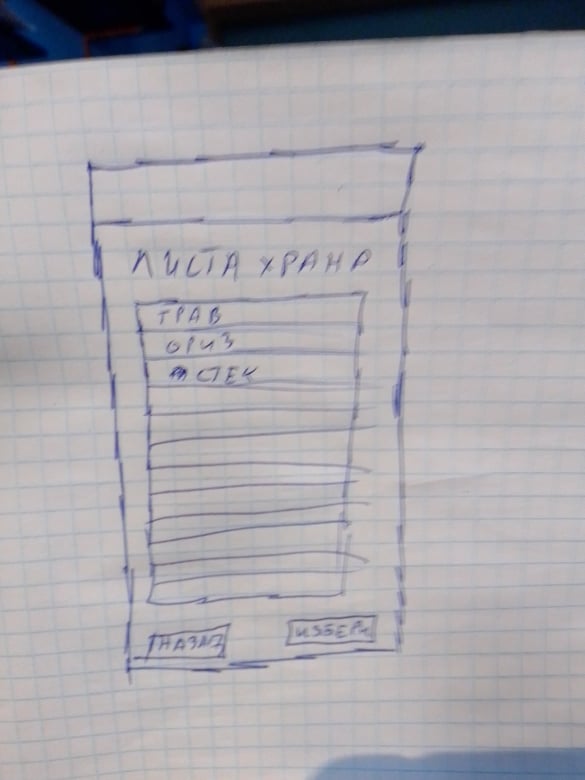 ЛИСТА ХРАНА
ТРАВ
ОРИЗ
СТЕК
НАЗАД
ИЗБЕРИ